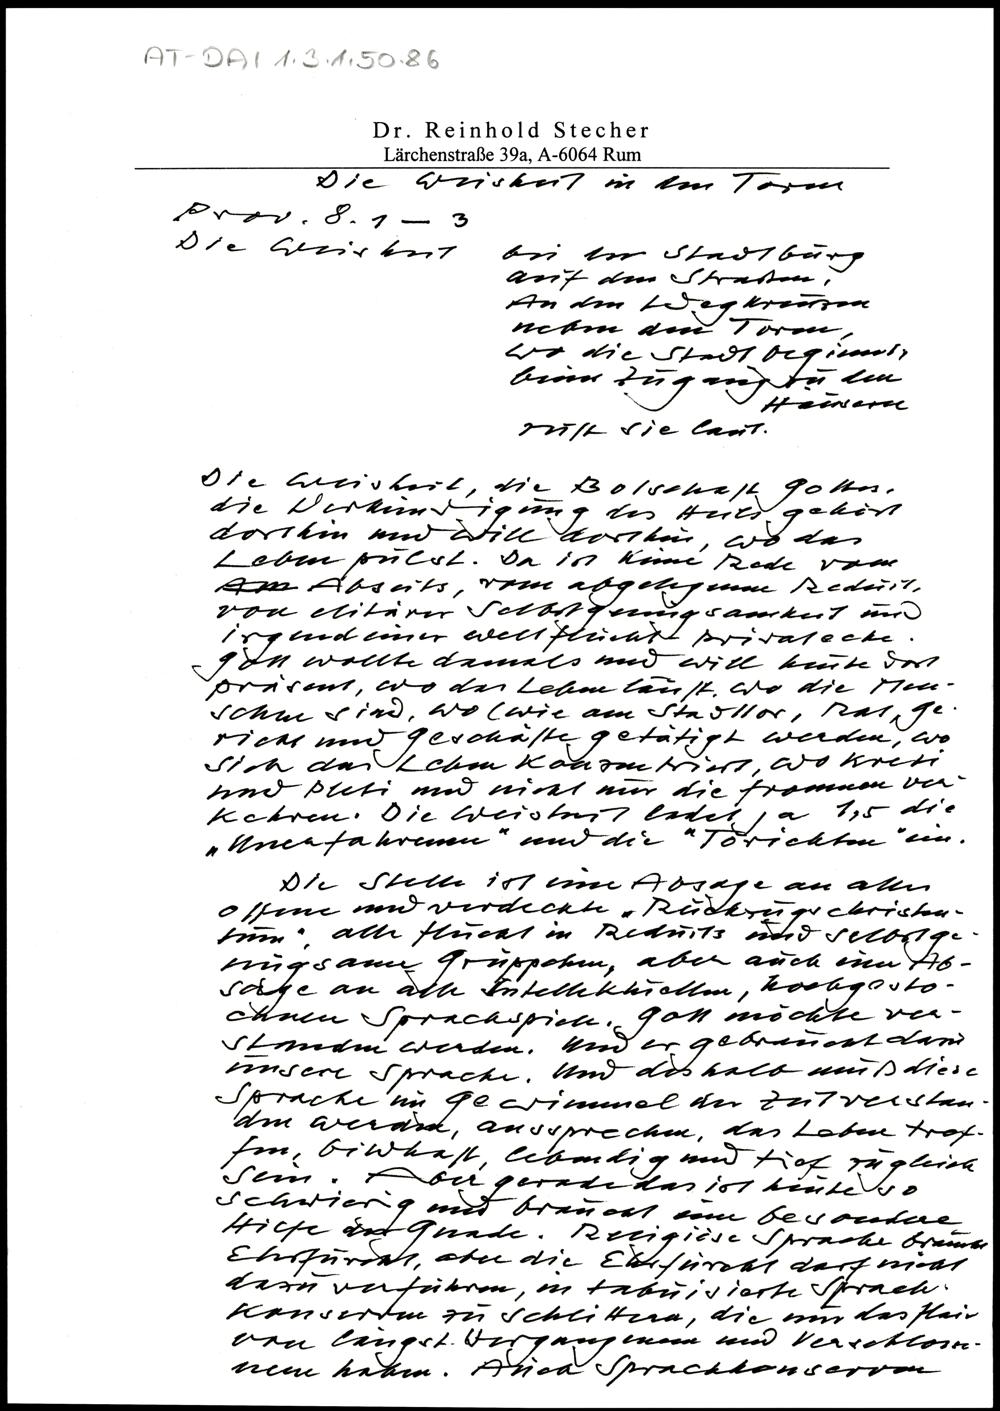 AT-DAI 1.3.1.50.86
Dr. Reinhold Stecher
Lärchenstraße 39a, A-6064 Rum
Die Weisheit in den Toren
Prov. 8. 1 – 3
Die Weisheit bei der Stadtburg
auf den Straßen,
An den Wegkreuzen
neben den Toren,
wo die Stadt beginnt,
beim Zugang zu den
Häusern
ruft sie laut.
Die Weisheit, die Botschaft Gottes,
die Verkündigung des Heils gehört
dorthin und will dorthin, wo das
Leben pulst. Da ist keine Rede vom
Abseits, vom abgelegenen Reduit,
von elitärer Selbstgenügsamkeit und
irgendeiner weltflucht privatecke.
Gott wollte damals und will heute dort
präsent, wo das Leben läuft, wo die Men-
schen sind, wo (wie am Stadttor, Rat, Ge-
richt und Geschäfte getätigt werden, wo
sich das Leben konzentriert, wo Kreti
und Pleti und nicht nur die frommen ver-
kehren. Die Weisheit ladet ja 1,5 die
„Unerfahrenen" und die "Törichten" ein.
Die Stelle ist eine Absage an alles
offene und verdeckte „Rückzugschristen-
tum", alle Flucht in Reduits und selbstge-
nügsame Grüppchen, aber auch eine Ab-
sage an alle intellektuellen, hochgesto-
chenen Sprachspiele. Gott möchte ver-
standen werden. Und er gebraucht dazu
unsere Sprache. Und deshalb muß diese
Sprache im Gewimmel der Zeit verstan-
den werden, ansprechen, das Leben tref-
fen, bildhaft, lebendig und tief zugleich
sein. Aber gerade das ist heute so
schwierig und braucht eine besondere
Hilfe der Gnade. Religiöse Sprache braucht
Ehrfurcht, aber die Ehrfurcht darf nicht
dazu verführen, in tabuisierte Sprach-
konserven zu schlittern, die nur das Flair
von längst Vergangenem und Verschlosse-
nem haben. Auch Sprachkonserven